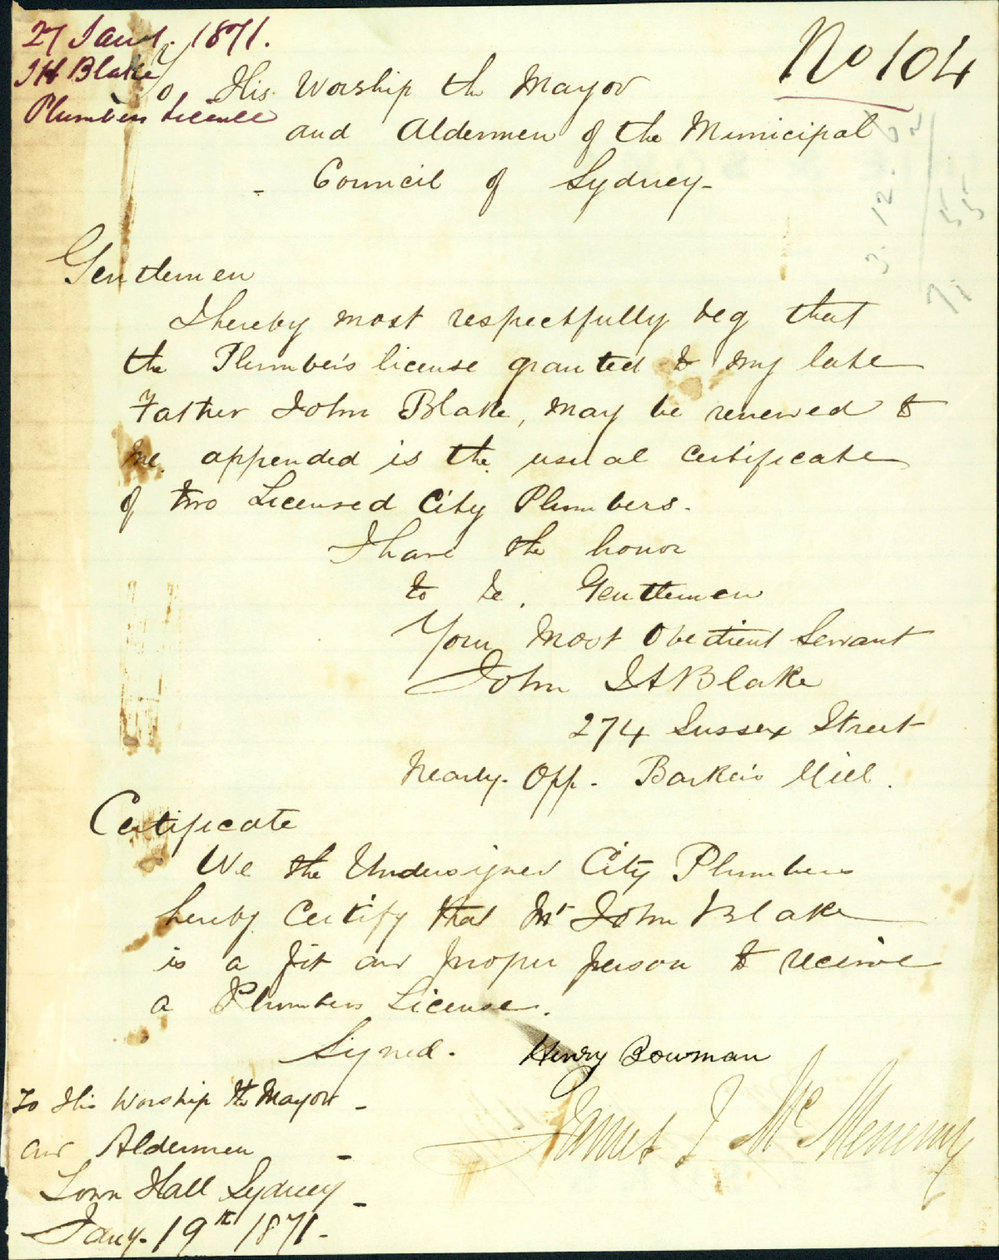 27 Jany. 1871.
J H Blake
Plumbers Licence
No 104
To His Worship the Mayor
and Aldermen of the Municipal
Council of Sydney -
3. 12. 62
71 / 55
Gentlemen
I hereby most respectfully beg that
the Plumber's license granted to my late
Father John Blake, may be renewed to
me. appended is the usual certificate
of two Licensed City Plumbers.
I have the honor
to be. Gentlemen
Your Most Obedient Servant
John H Blake
274 Sussex Street
Nearly. Opp. Barker's Mill.
Certificate
We the Undersigned City Plumbers
hereby Certify that Mr John Blake
is a fit and proper person to receive
a Plumbers License.
Signed. Henry Bowman
James J McMenemy
To His Worship the Mayor -
and Aldermen -
Town Hall Sydney -
Jany. 19th 1871 -